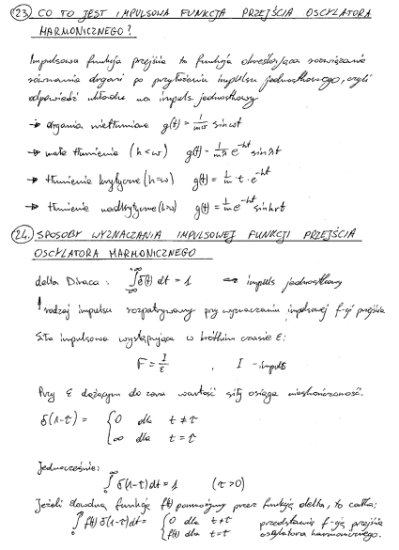 23. CO TO JEST IMPULSOWA FUNKCJA PRZEJŚCIA OSCYLATORA
HARMONICZNEGO?
Impulsowa funkcja przejścia to funkcja określająca rozwiązanie
równania drgań po przyłożeniu impulsu jednostkowego, czyli
odpowiedź układu na impuls jednostkowy
→ drgania nietłumione g(t) = 1/mω sin ωt
→ małe tłumienie (h<ω) g(t) = 1/mλ e^-ht sin λt
→ tłumienie krytyczne (h=ω) g(t) = 1/m · t · e^-ht
→ tłumienie nadkrytyczne (h>ω) g(t) = 1/m e^-ht
24. SPOSOBY WYZNACZANIA IMPULSOWEJ FUNKCJI PRZEJŚCIA
OSCYLATORA HARMONICZNEGO
delta Diraca: ∫_-∞^+∞ δ(t) dt = 1 → impuls jednostkowy
↑ rodzaj impulsu rozpatrywany przy wyznaczaniu impulsowej f-cji przejścia
Siła impulsowa występująca w krótkim czasie ε:
F = I/ε , I - impuls
Przy ε dążącym do zera wartość siły osiąga nieskończoność.
δ(t-τ) = { 0 dla t ≠ τ
∞ dla t = τ
Jednocześnie:
∫_0^∞ δ(t-τ) dt = 1 (τ > 0)
Jeżeli dowolną funkcję f(t) pomnożymy przez funkcję delta, to całka:
∫_0^∞ f(t) δ(t-τ) dt = { 0 dla t ≠ τ przedstawia f-cję przejścia
f(t) dla t = τ oscylatora harmonicznego.